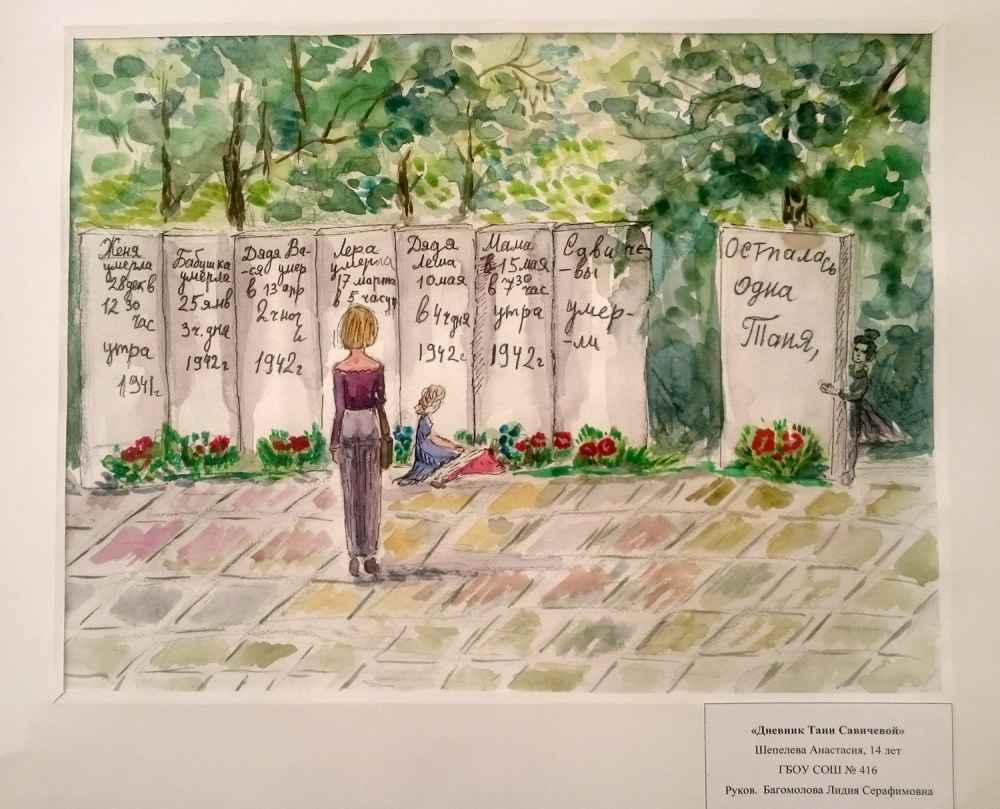 Женя
умерла
28 дек в
12 30
час
утра
1941г
Бабушка
умерла
25 янв
3ч. дня
1942г
Дядя Ва-
-ся умер
в 13 апр
2ч ноч
и
1942г
Лера
умерла
17 марта
в 5 часут
Дядя
Леша
10 мая
в 4ч дня
1942г
Мама
в 15 мая
в 730
час
утра
1942г
Савиче-
-вы
умер-
-ли
Осталась
одна
Таня,
«Дневник Тани Савичевой»
Шепелева Анастасия, 14 лет
ГБОУ СОШ № 416
Руков. Багомолова Лидия Серафимовна